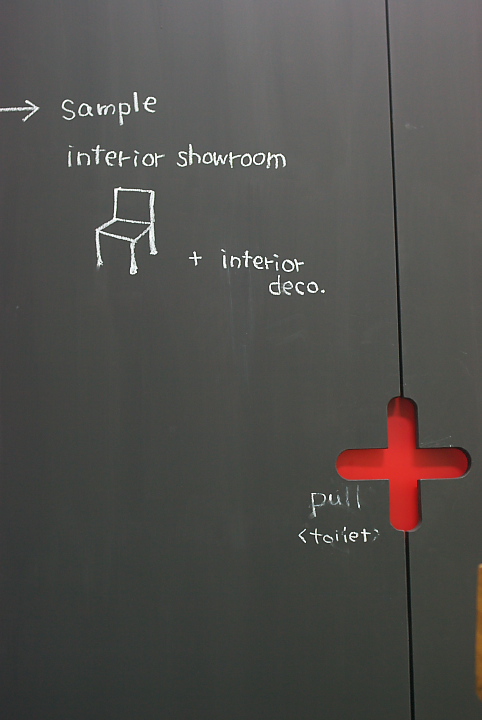 → sample
interior showroom
+ interior
deco.
pull
<toilet>